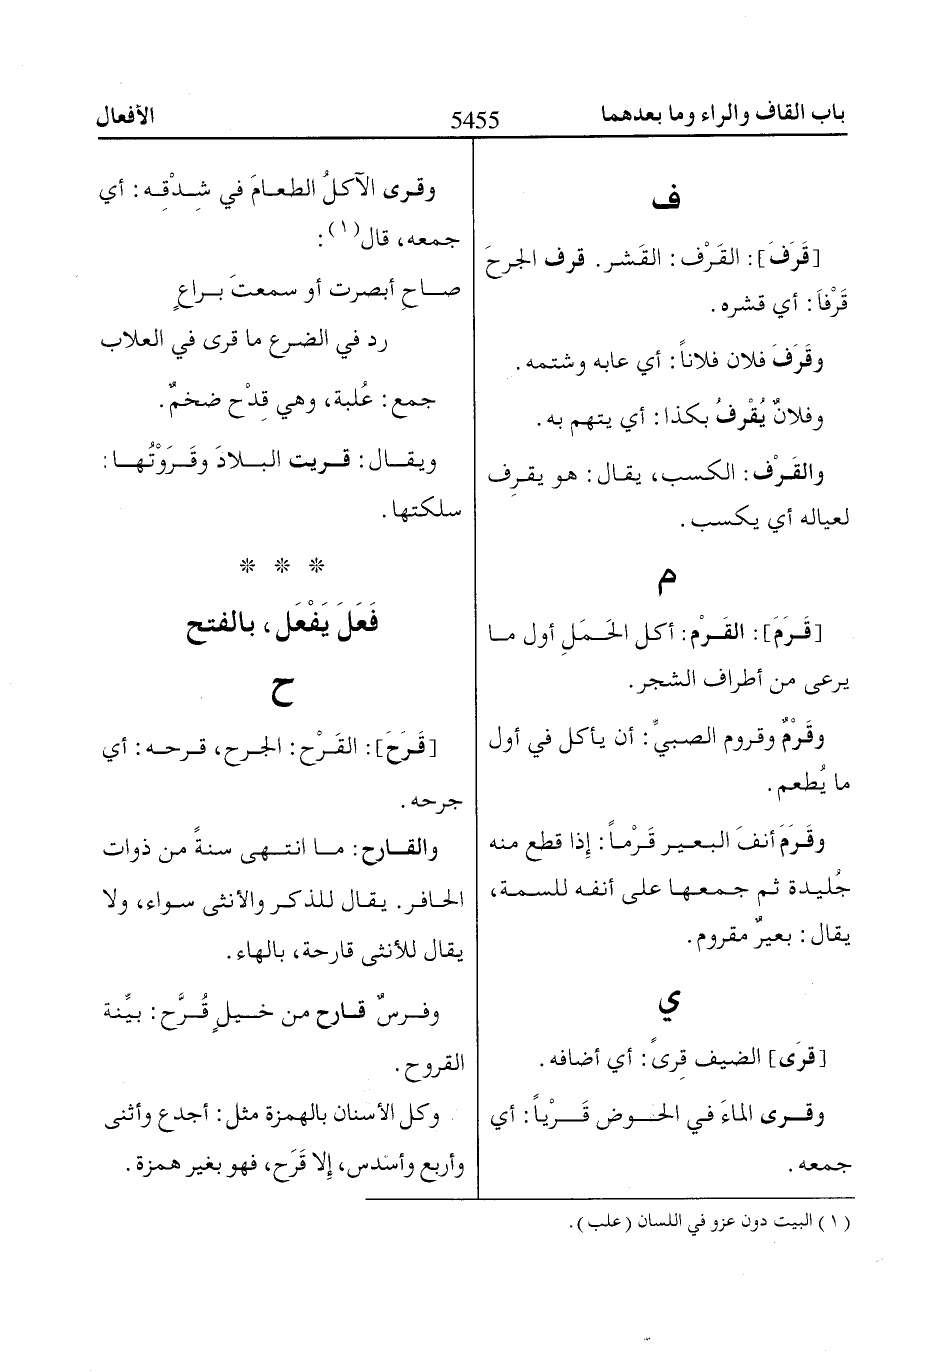 باب القاف والراء وما بعدهما 5455 الأفعال
ف
[قَرَفَ]: القَرْف: القَشر. قرف الجرحَ
قَرْفاً: أي قشره.
وقَرَفَ فلان فلاناً: أي عابه وشتمه.
وفلانٌ يُقْرفُ بكذا: أي يتهم به.
والقَرْف: الكسب، يقال: هو يقرِف
لعياله أي يكسب.
م
[قَرَمَ]: القَرْم: أكل الحَمَلِ أول ما
يرعى من أطراف الشجر.
وقَرْمٌ وقروم الصبيِّ: أن يأكل في أول
ما يُطعم.
وقَرَمَ أنفَ البعير قَرْماً: إذا قطع منه
جُليدة ثم جمعها على أنفه للسمة،
يقال: بعيرٌ مقروم.
ي
[قرَى] الضيف قرِىً: أي أضافه.
وقرى الماءَ في الحوض قَرْياً: أي
جمعه.
وقرى الآكلُ الطعامَ في شِدْقِه: أي
جمعه، قال(١):
صاحِ أبصرت أو سمعتَ براعٍ
رد في الضرع ما قرى في العلاب
جمع: عُلبة، وهي قِدْح ضخمٌ.
ويقال: قريت البلادَ وقَرَوْتُها:
سلكتها.
* * *
فَعَلَ يَفْعَل، بالفتح
ح
[قَرَحَ]: القَرْح: الجرح، قرحه: أي
جرحه.
والقارح: ما انتهى سنةً من ذوات
الحافر. يقال للذكر والأنثى سواء، ولا
يقال للأنثى قارحة، بالهاء.
وفرسٌ قارح من خيلٍ قُرَّح: بيِّنة
القروح.
وكل الأسنان بالهمزة مثل: أجدع وأثنى
وأربع وأسدس، إلا قَرَح، فهو بغير همزة.
(١) البيت دون عزو في اللسان (علب).